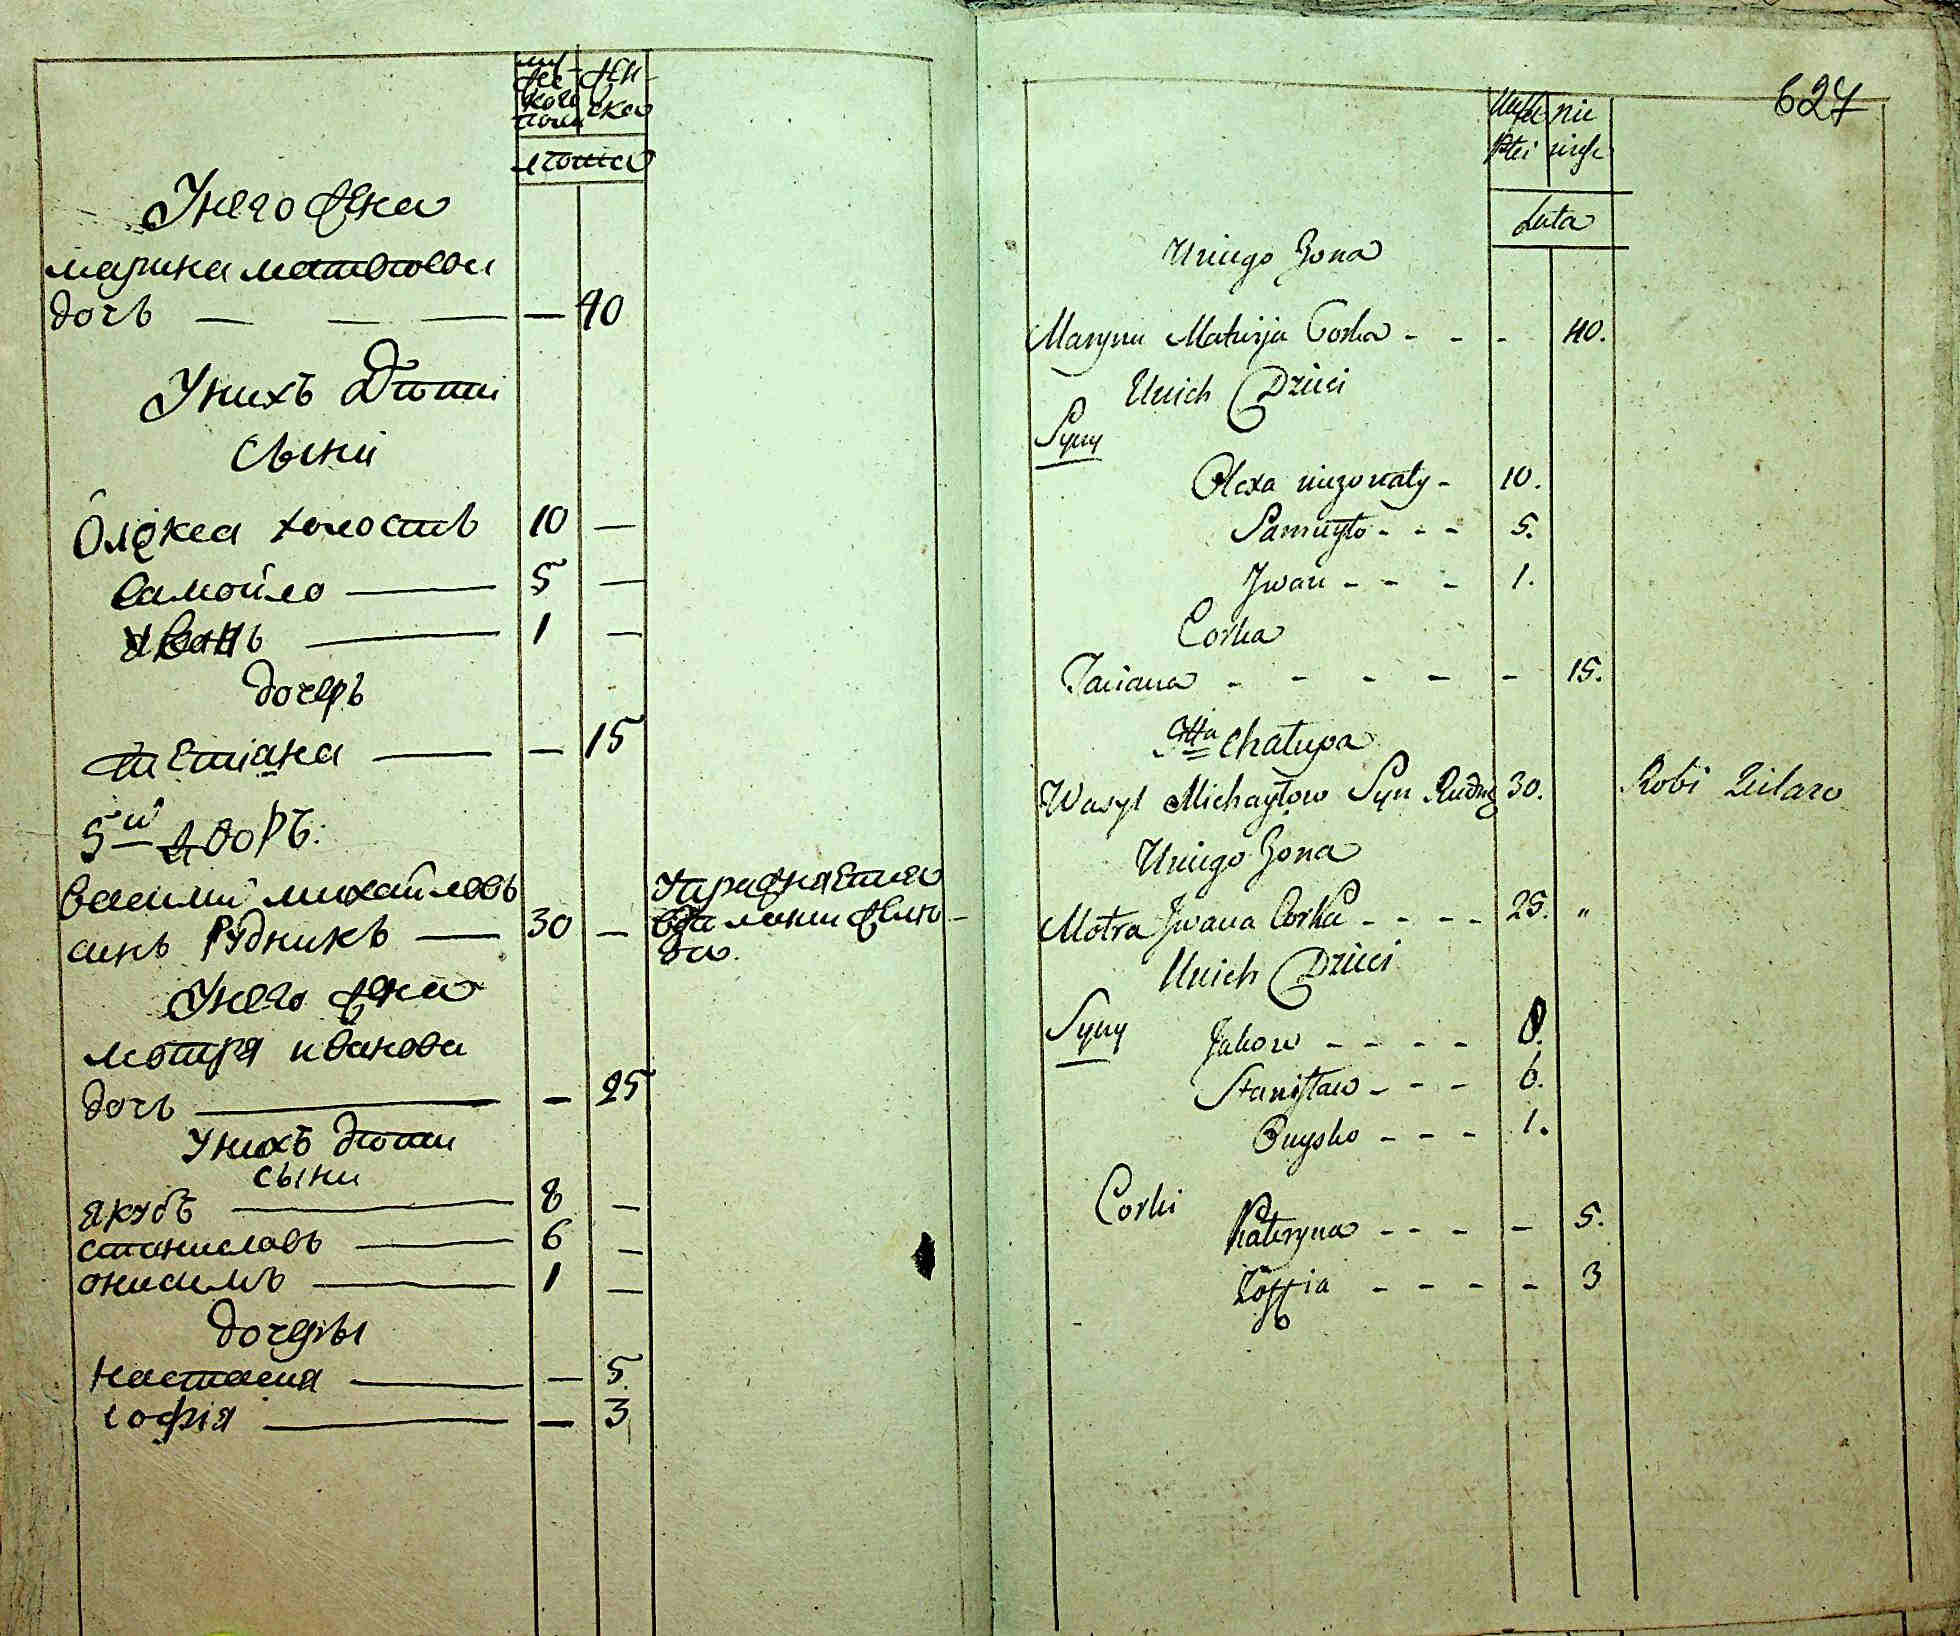 муж
ского
пола
жен
ска
лѣта
У него жена
марина матвѣева
дочь — — — — 40
У нихъ дѣти
сыни
Олекса холостъ 10 —
самойло — 5 —
иванъ — 1 —
дочеръ
тетіана — — 15
5й дворъ:
василий михайловъ
синъ Рудникъ — 30 —
упражняется
в дѣлании желѣ-
за.
У него жена
мотря иванова
дочь — — 25
У нихъ дѣти
сыни
якубъ — 8 —
станиславъ — 6 —
онисимъ — 1 —
дочеры
настасия — — 5
софія — — 3
627
Lata
Uniego Żona
Maryna Matwija Corka - - - 40.
Unich Dzieci
Syny
Olexa nieżonaty - 10.
Samuyło - - - 5.
Jwan - - - 1.
Corka
Taciana - - - - - 15.
5ta Chałupa
Wasyl Michayłow Syn Rudnig 30. Robi Żelazo
Uniego Żona
Motra Jwana Corka - - - - 25. "
Unich Dzieci
Syny Jakow - - - - 8.
Stanisław - - - 6.
Onysko - - - 1.
Corki Kateryna - - - - 5.
Zoffia - - - - - 3